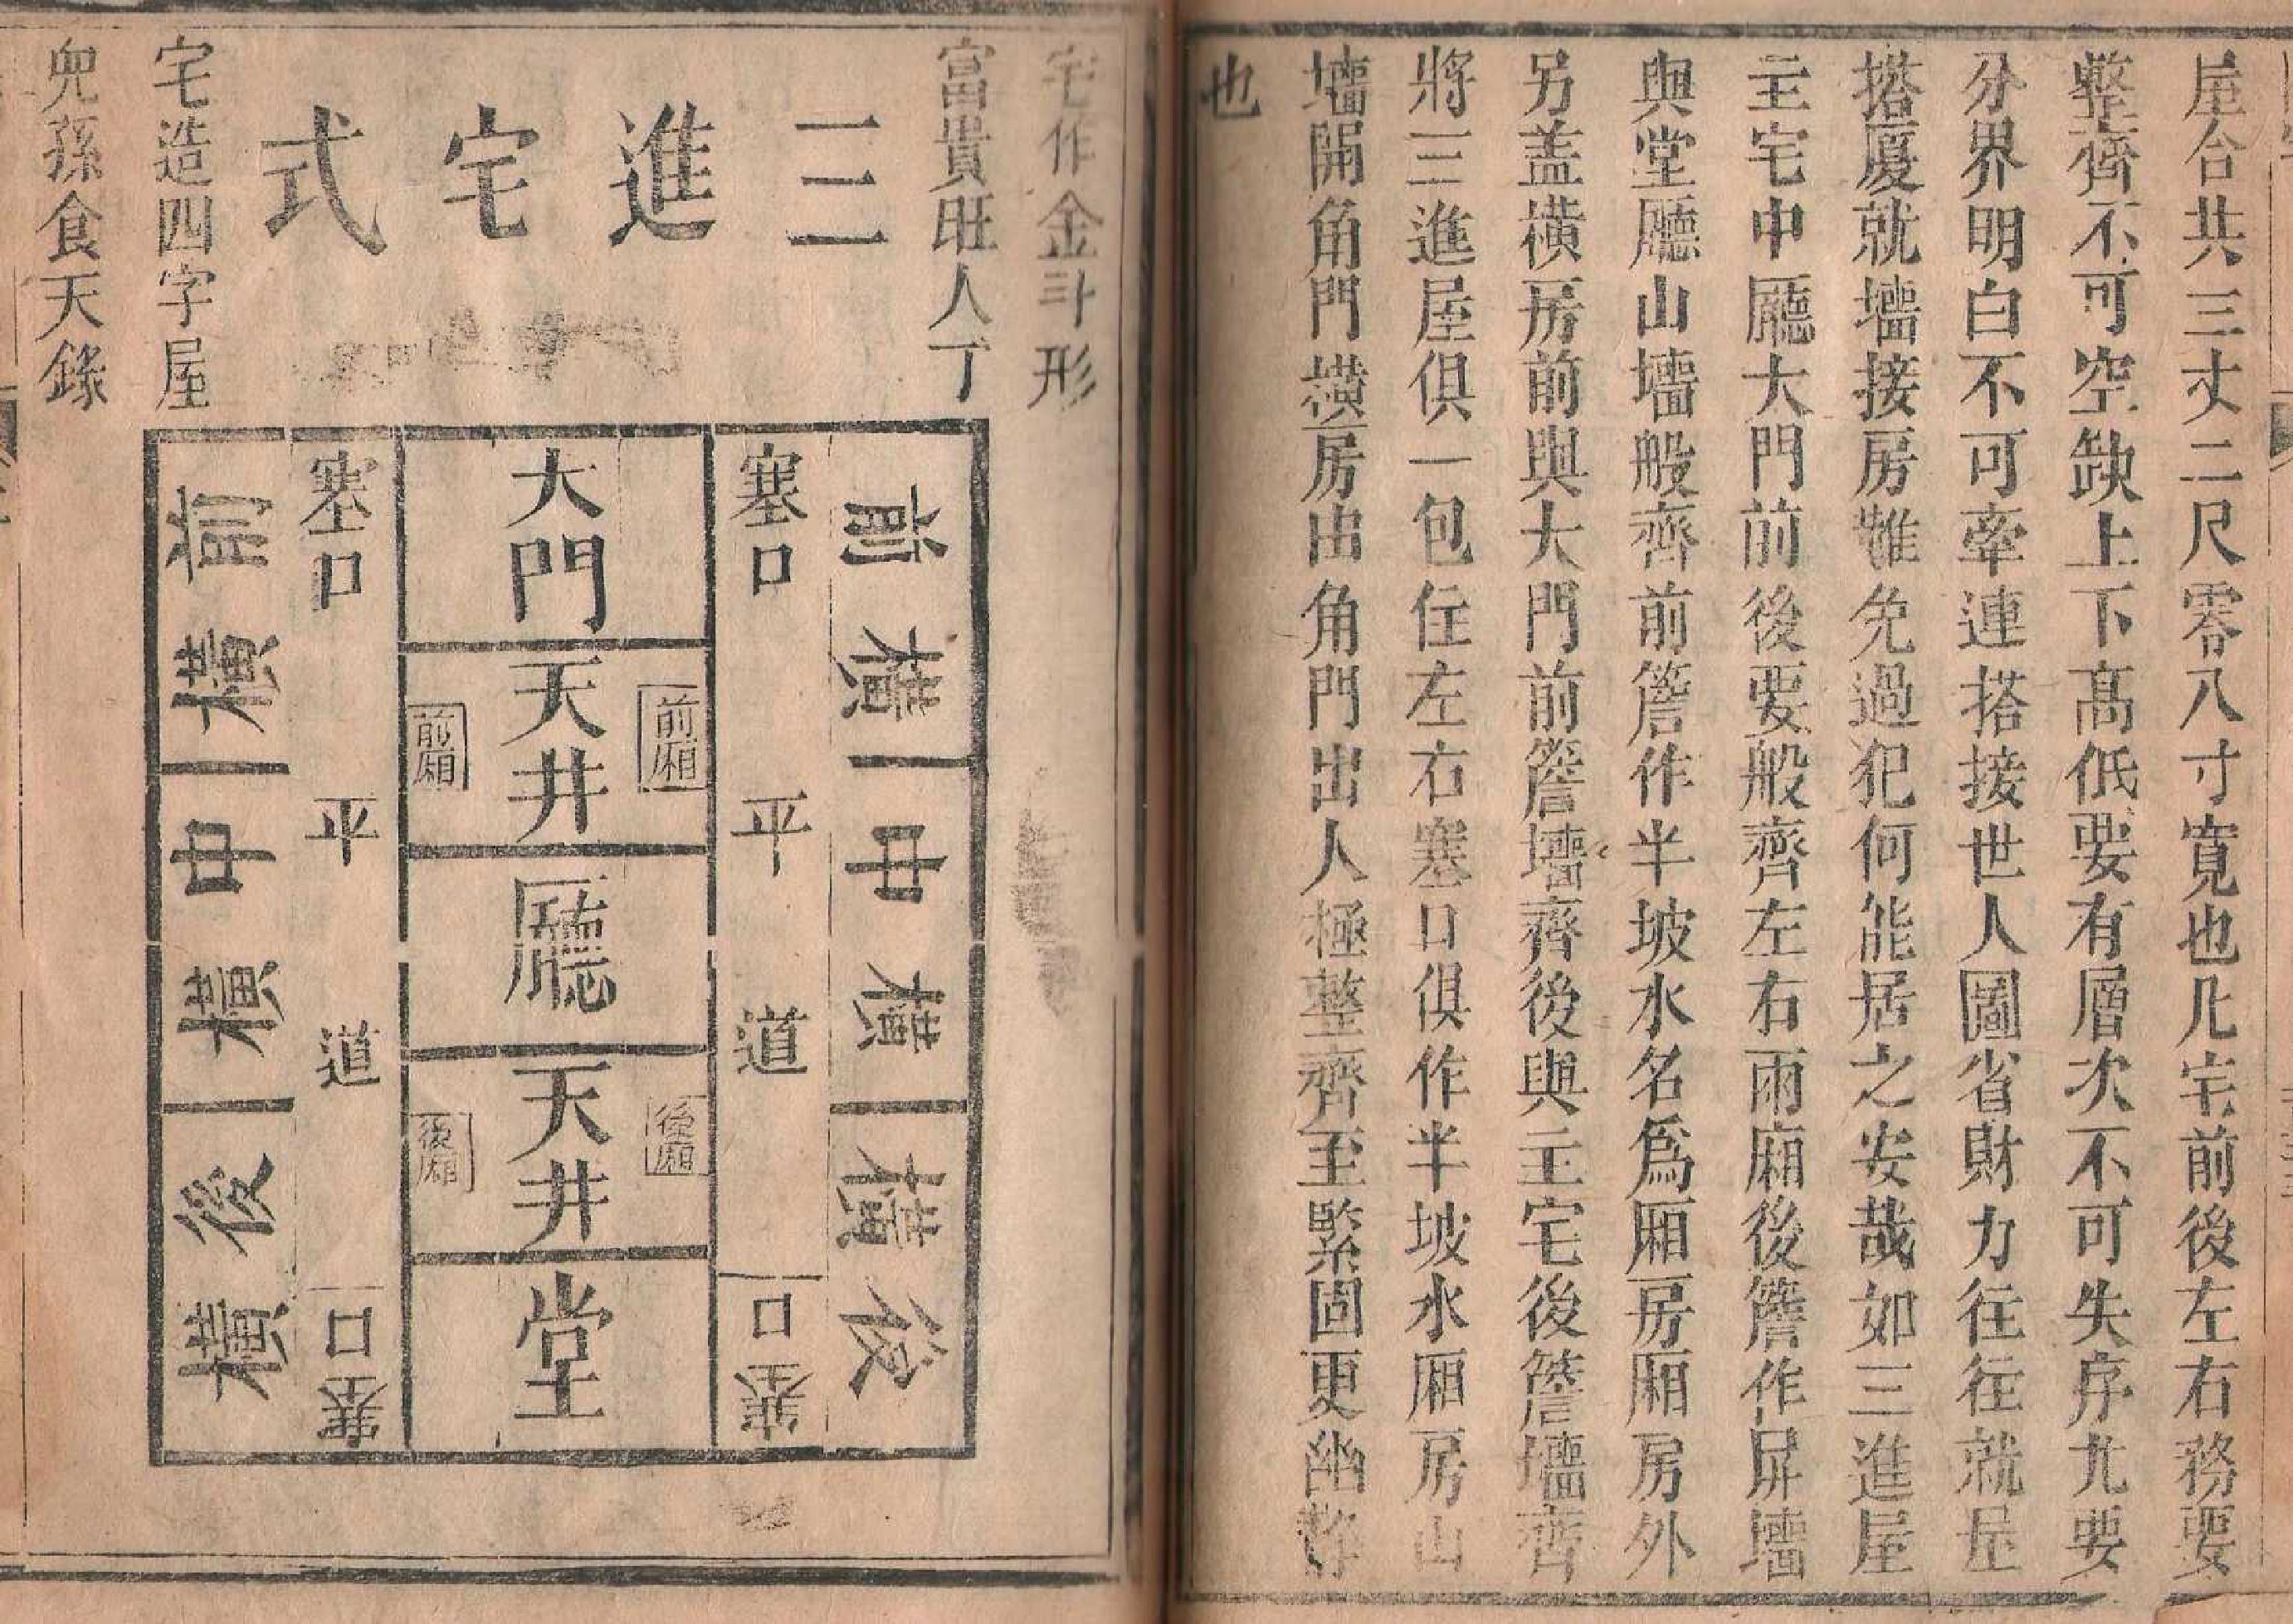 屋合共三丈二尺零八寸寬也凡宅前後左右務要
整齊不可空缺上下髙低要有層次不可失序尤要
分界明白不可牽連搭接世人圖省財力往往就屋
搭厦就墻接房雖免過犯何能居之安哉如三進屋
主宅中廳大門前後要般齊左右兩廂後簷作屏墻
與堂廳山墻般齊前簷作半坡水名爲厢房厢房外
另盖橫房前與大門前簷墻齊後與主宅後簷墻齊
將三進屋俱一包住左右塞口俱作半坡水厢房山
墻開角門橫房出角門出人極整齊至緊固更幽靜
也
宅作金斗形
富貴旺人丁
三進宅式
宅造四字屋
兒孫食天錄
前橫
中橫
橫後
塞口
平道
口塞
大門
天井
前厢
前厢
廳
天井
後厢
後厢
堂
塞口
平道
口塞
前橫
中橫
後橫